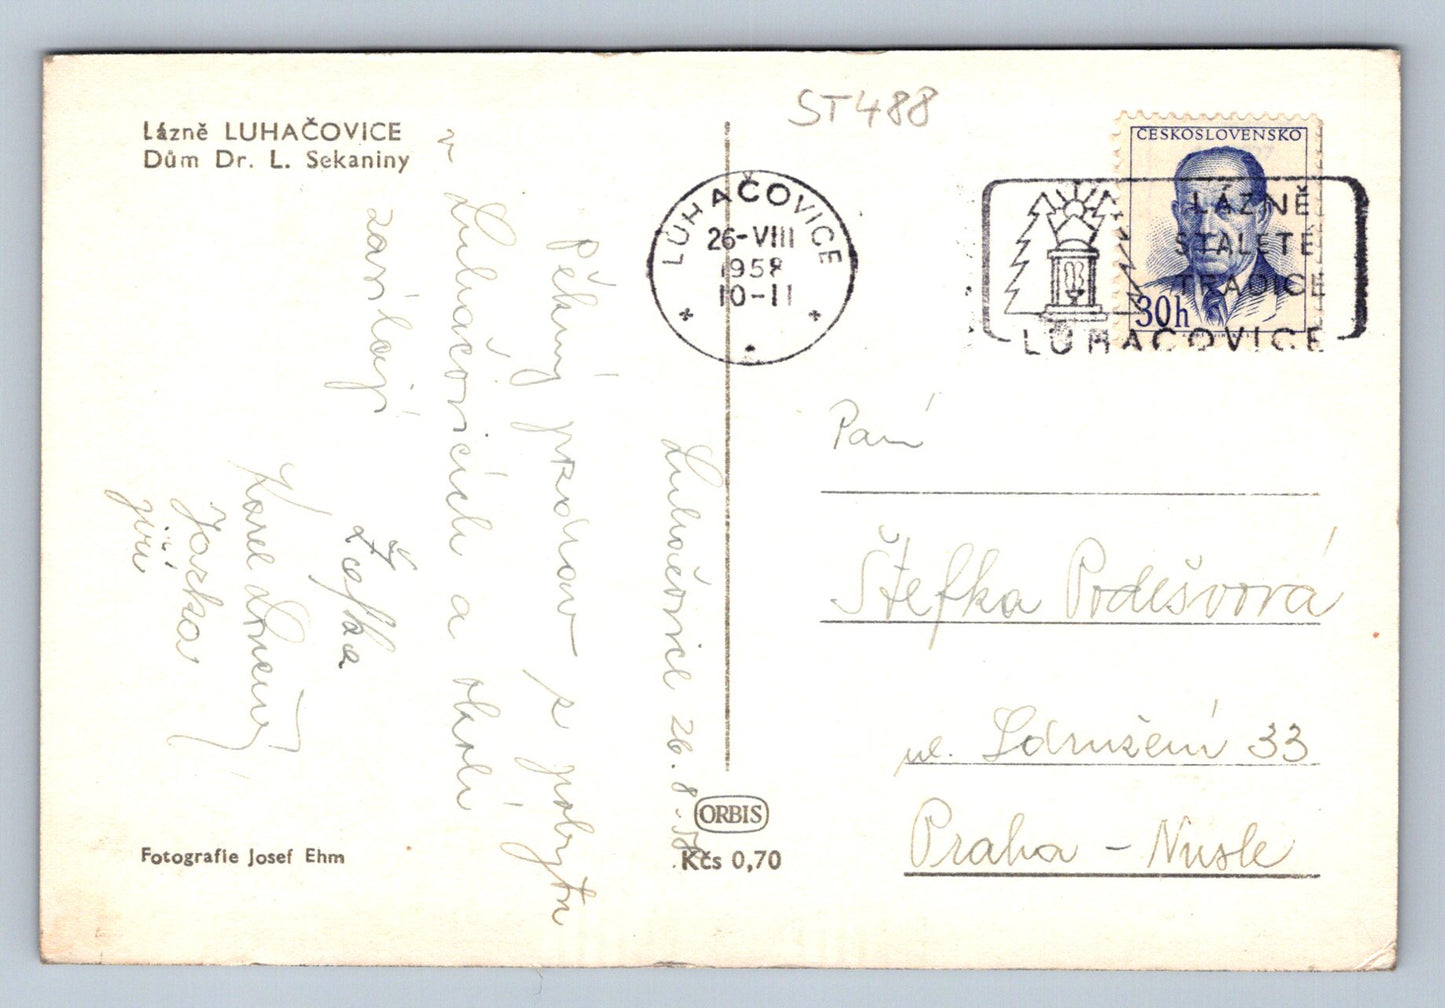 Lázně LUHAČOVICE
Dům Dr. L. Sekaniny
ST488
LUHAČOVICE
26-VIII
1958
10-11
ČESKOSLOVENSKO
30h
LÁZNĚ
STALETÉ
TRADICE
LUHAČOVICE
Luhačovice 26. 8. 58.
Pěkný pozdrav z pobytu
v Luhačovicích a okolí
zasílají
Žofka
Karel
Jarka
Jiří
Paní
Štefka Podešvová
ul. Sdružení 33
Praha - Nusle
ORBIS
Kčs 0,70
Fotografie Josef Ehm